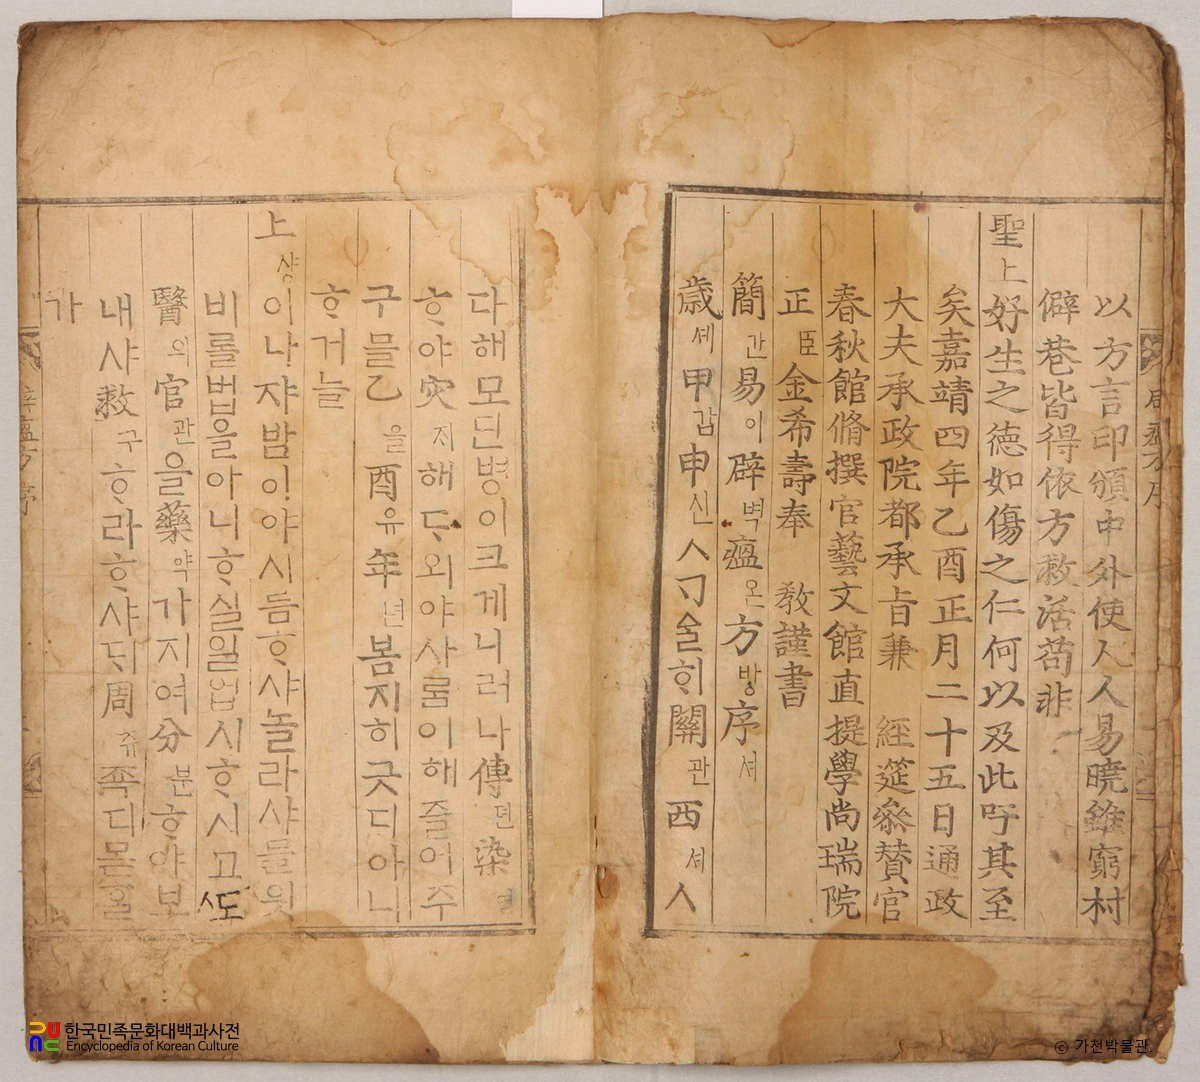 以方言印頒中外使人人易曉雖窮村
僻巷皆得依方救活苟非
聖上好生之德如傷之仁何以及此吁其至
矣嘉靖四年乙酉正月二十五日通政
大夫承政院都承旨兼 經筵參賛官
春秋館脩撰官藝文館直提學尚瑞院
正臣金希壽奉 敎謹書
簡간易이辟벽瘟온方방序셔
歲셰甲갑申신
關관西셔人
다해모딘병이크게니러나傳뎐染
ᄒᆞ야災ᄌᆡ해ᄃᆞ외야사ᄅᆞᆷ이해즐어주
구믈乙을酉유年년봄지히긋디아니
ᄒᆞ거늘
上샹이나쟈밤이야시름ᄒᆞ샤놀라샤믈윗
비롤법을아니ᄒᆞ실일업시ᄒᆞ시고ᄯᅩ
醫의官관을藥약가지여分분ᄒᆞ야보
내샤救구ᄒᆞ라ᄒᆞ샤ᄃᆡ周쥬죡디몯ᄒᆞᆯ
가
辟瘟方序
한국민족문화대백과사전
Encyclopedia of Korean Culture
© 가천박물관.